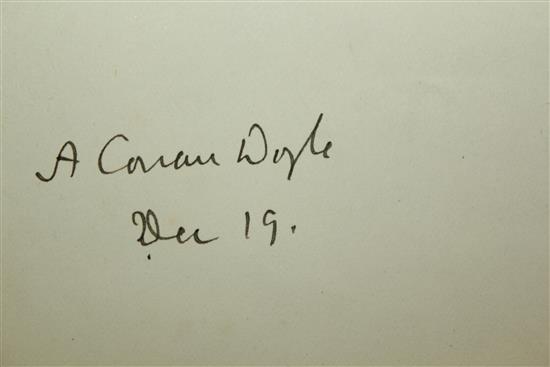 A Conan Doyle
Dec 19.